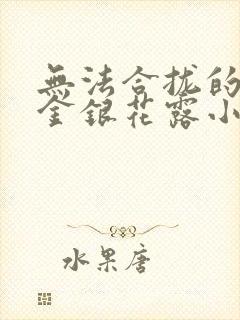 無法合拢的
金銀花露小
水果唐